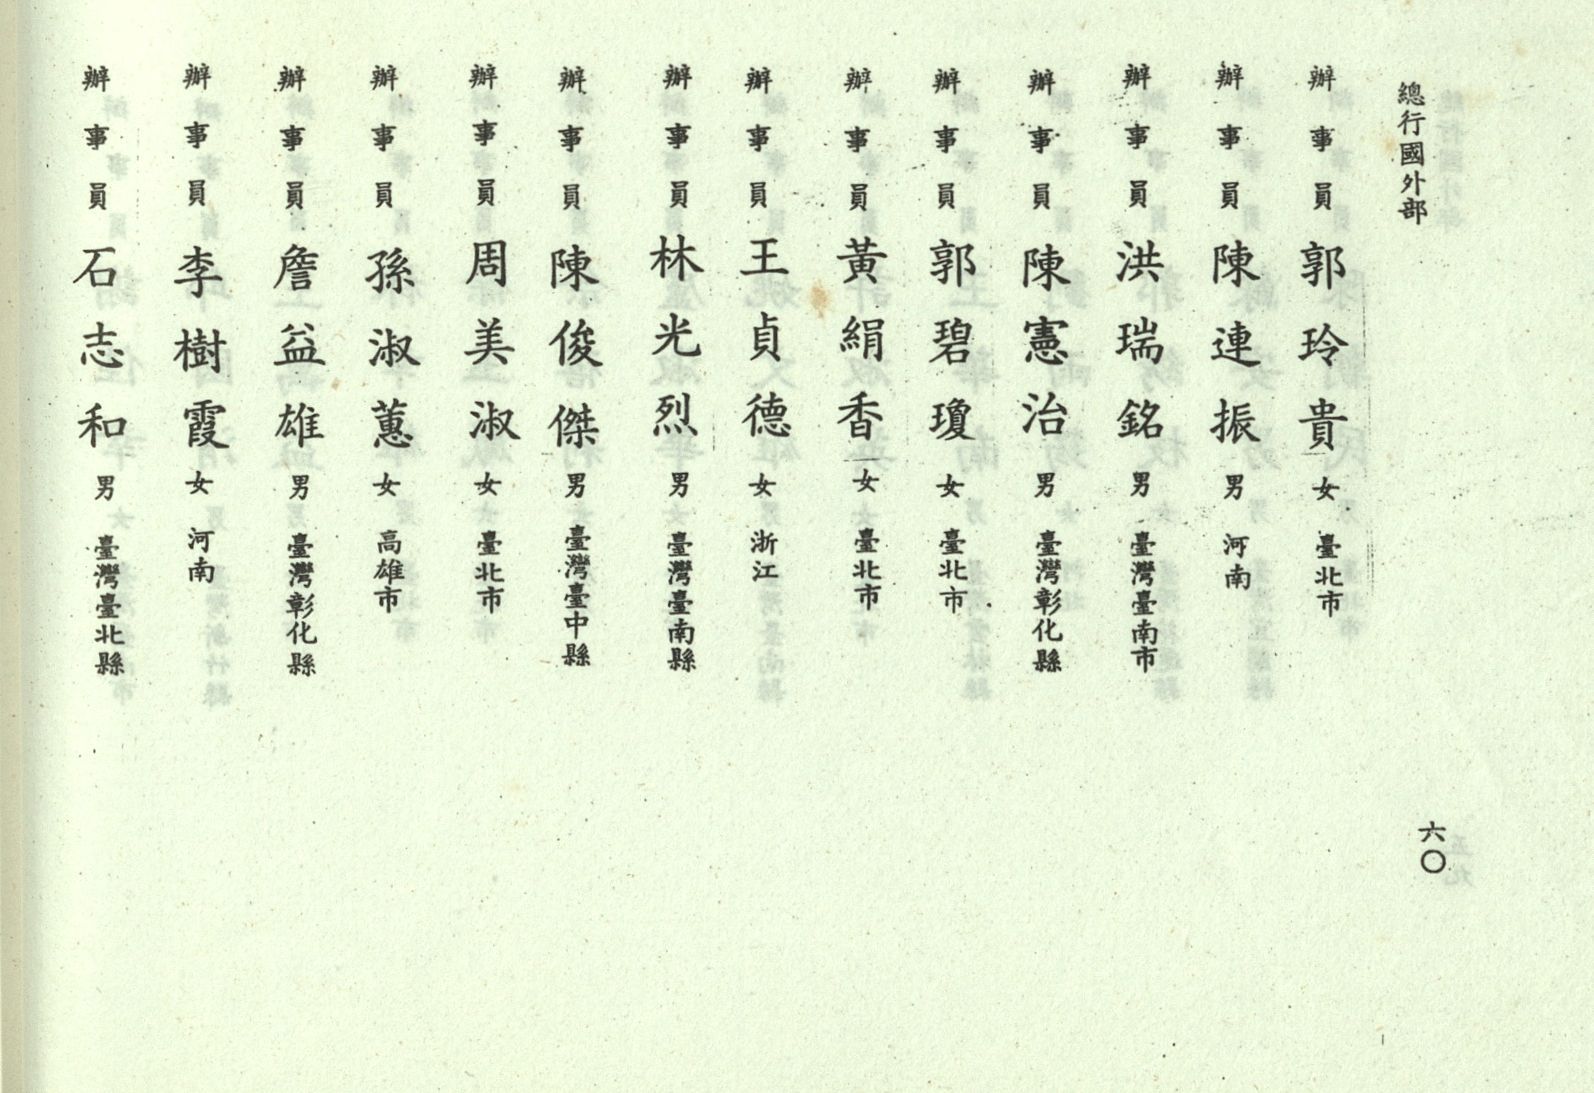 總行國外部
辦事員 郭玲貴 女 臺北市
辦事員 陳連振 男 河南
辦事員 洪瑞銘 男 臺灣臺南市
辦事員 陳憲治 男 臺灣彰化縣
辦事員 郭碧瓊 女 臺北市
辦事員 黃絹香 女 臺北市
辦事員 王貞德 女 浙江
辦事員 林光烈 男 臺灣臺南縣
辦事員 陳俊傑 男 臺灣臺中縣
辦事員 周美淑 女 臺北市
辦事員 孫淑蕙 女 高雄市
辦事員 詹益雄 男 臺灣彰化縣
辦事員 李樹霞 女 河南
辦事員 石志和 男 臺灣臺北縣
六〇